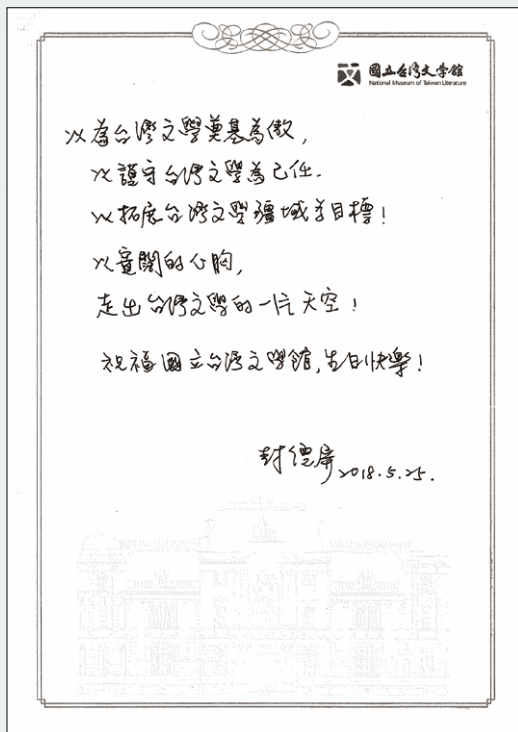 國立台灣文學館
National Museum of Taiwan Literature
以為台灣文學奠基為傲,
以謹守台灣文學為己任.
以拓展台灣文學疆域為目標!
以寬闊的心胸,
走出台灣文學的一片天空!
祝福國立台灣文學館,生日快樂!
封德屏 2018.5.25.